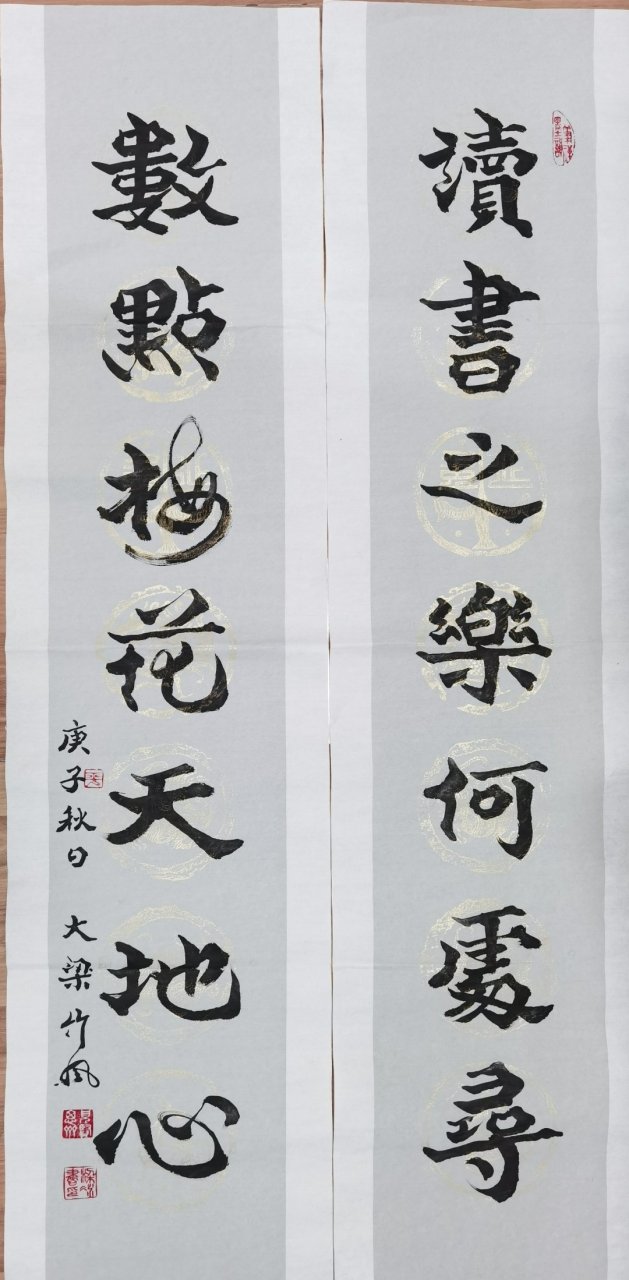 讀書之樂何處尋
數點梅花天地心
庚子秋日 大梁竹風